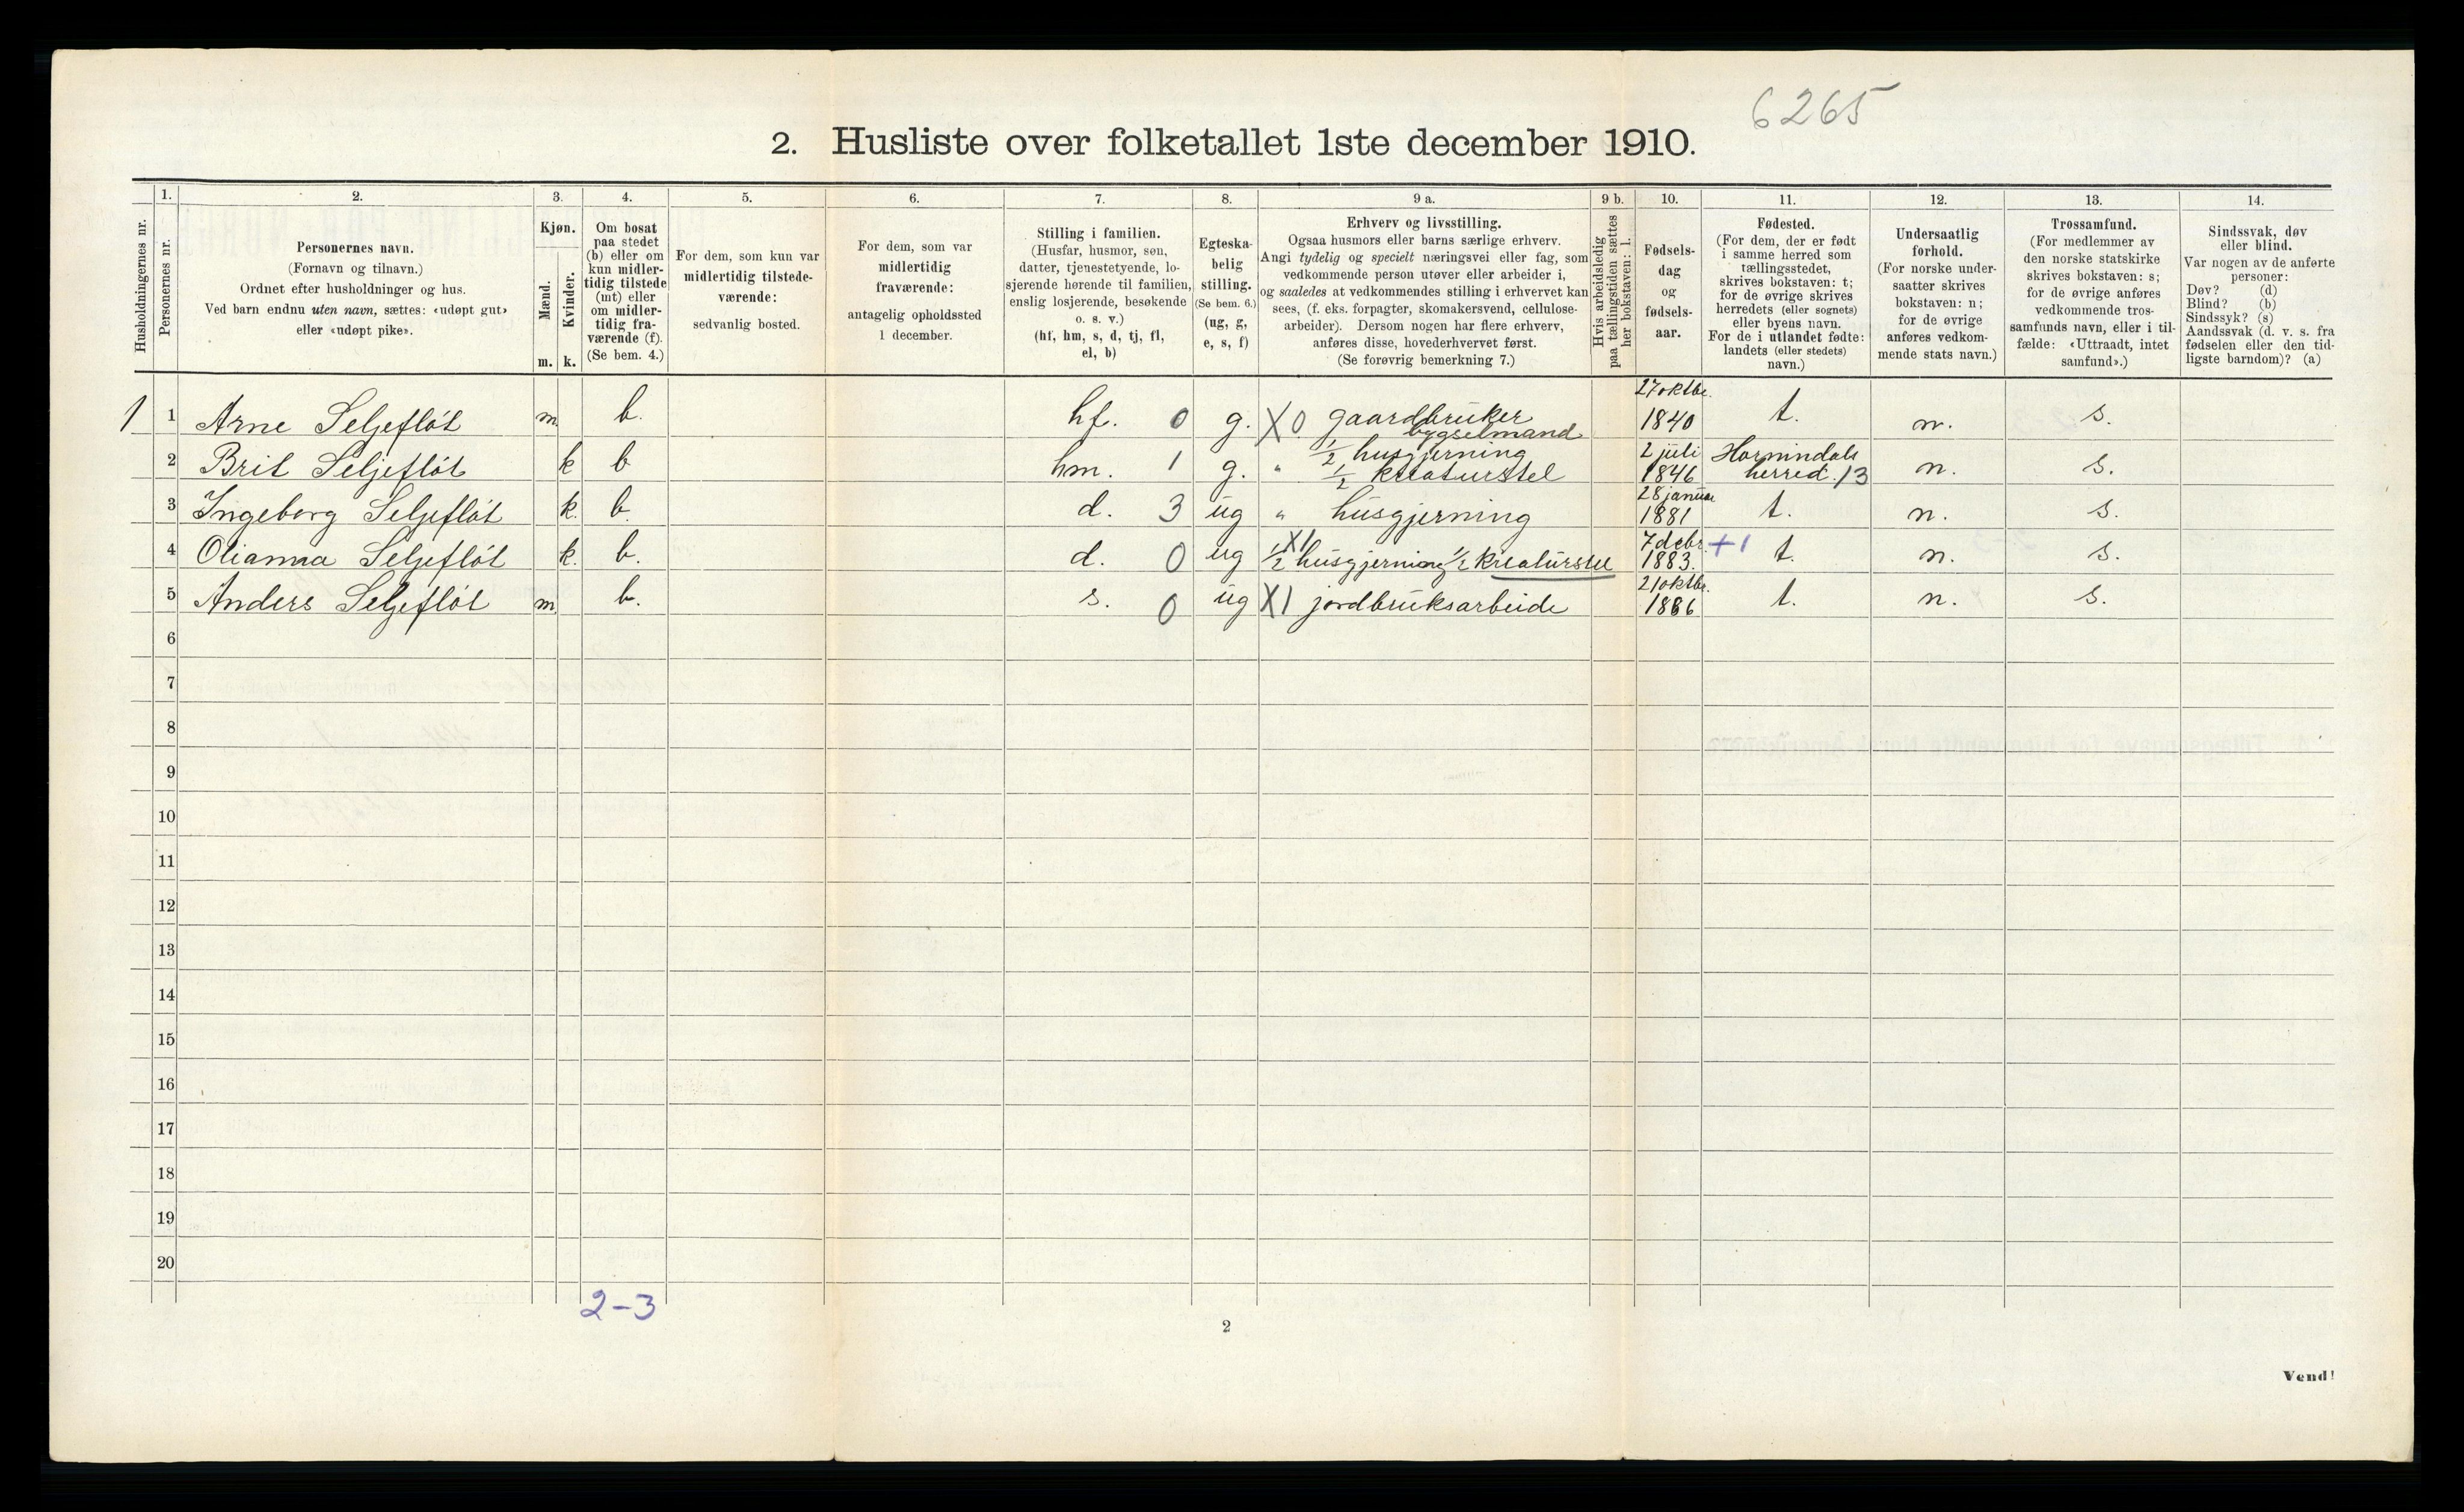 6265
2. Husliste over folketallet 1ste december 1910.
Husholdningernes nr.
1.
Personernes nr.
2.
Personernes navn.
(Fornavn og tilnavn.)
Ordnet efter husholdninger og hus.
Ved barn endnu uten navn, sættes: «udøpt gut»
eller «udøpt pike».
3.
Kjøn.
Mænd.
m.
Kvinder.
k.
4.
Om bosat
paa stedet
(b) eller om
kun midler-
tidig tilstede
(mt) eller
om midler-
tidig fra-
værende (f).
(Se bem. 4.)
5.
For dem, som kun var
midlertidig tilstede-
værende:
sedvanlig bosted.
6.
For dem, som var
midlertidig
fraværende:
antagelig opholdssted
1 december.
7.
Stilling i familien.
(Husfar, husmor, søn,
datter, tjenestetyende, lo-
sjerende hørende til familien,
enslig losjerende, besøkende
o. s. v.)
(hf, hm, s, d, tj, fl,
el, b)
8.
Egteska-
belig
stilling.
(Se bem. 6.)
(ug, g,
e, s, f)
9 a.
Erhverv og livsstilling.
Ogsaa husmors eller barns særlige erhverv.
Angi tydelig og specielt næringsvei eller fag, som
vedkommende person utøver eller arbeider i,
og saaledes at vedkommendes stilling i erhvervet kan
sees, (f. eks. forpagter, skomakersvend, cellulose-
arbeider). Dersom nogen har flere erhverv,
anføres disse, hovederhvervet først.
(Se forøvrig bemerkning 7.)
9 b.
Hvis arbeidsledig
paa tællingstiden sættes
her bokstaven: l.
10.
Fødsels-
dag
og
fødsels-
aar.
11.
Fødested.
(For dem, der er født
i samme herred som
tællingsstedet,
skrives bokstaven: t;
for de øvrige skrives
herredets (eller sognets)
eller byens navn.
For de i utlandet fødte:
landets (eller stedets)
navn.)
12.
Undersaatlig
forhold.
(For norske under-
saatter skrives
bokstaven: n;
for de øvrige
anføres vedkom-
mende stats navn.)
13.
Trossamfund.
(For medlemmer av
den norske statskirke
skrives bokstaven: s;
for de øvrige anføres
vedkommende tros-
samfunds navn, eller i til-
fælde: «Uttraadt, intet
samfund».)
14.
Sindssvak, døv
eller blind.
Var nogen av de anførte
personer:
Døv? (d)
Blind? (b)
Sindssyk? (s)
Aandssvak (d. v. s. fra
fødselen eller den tid-
ligste barndom)? (a)
1 1 Arne Seljeflót m b. hf. 0 g. X0 gaardbruker bygselmand 27 oktbr. 1840 t. n. s.
2 Brit Seljeflót k b hm. 1 g. " 1/2 husgjerning 1/2 kreaturstel 2 juli 1846 Hornindals herred. 13 n. s.
3 Ingeborg Seljeflót k. b. d. 3 ug " husgjerning 28 januar 1881 t. n. s.
4 Olianna Seljeflót k. b. d. 0 ug X1 1/2 husgjerning 1/2 kreaturstel 7 decbr. 1883. +1 t. n. s.
5 Anders Seljeflót m b. s. 0 ug X1 jordbruksarbeide 21 oktbr. 1886 t. n. s.
6
7
8
9
10
11
12
13
14
15
16
17
18
19
20
2-3
2
Vend!